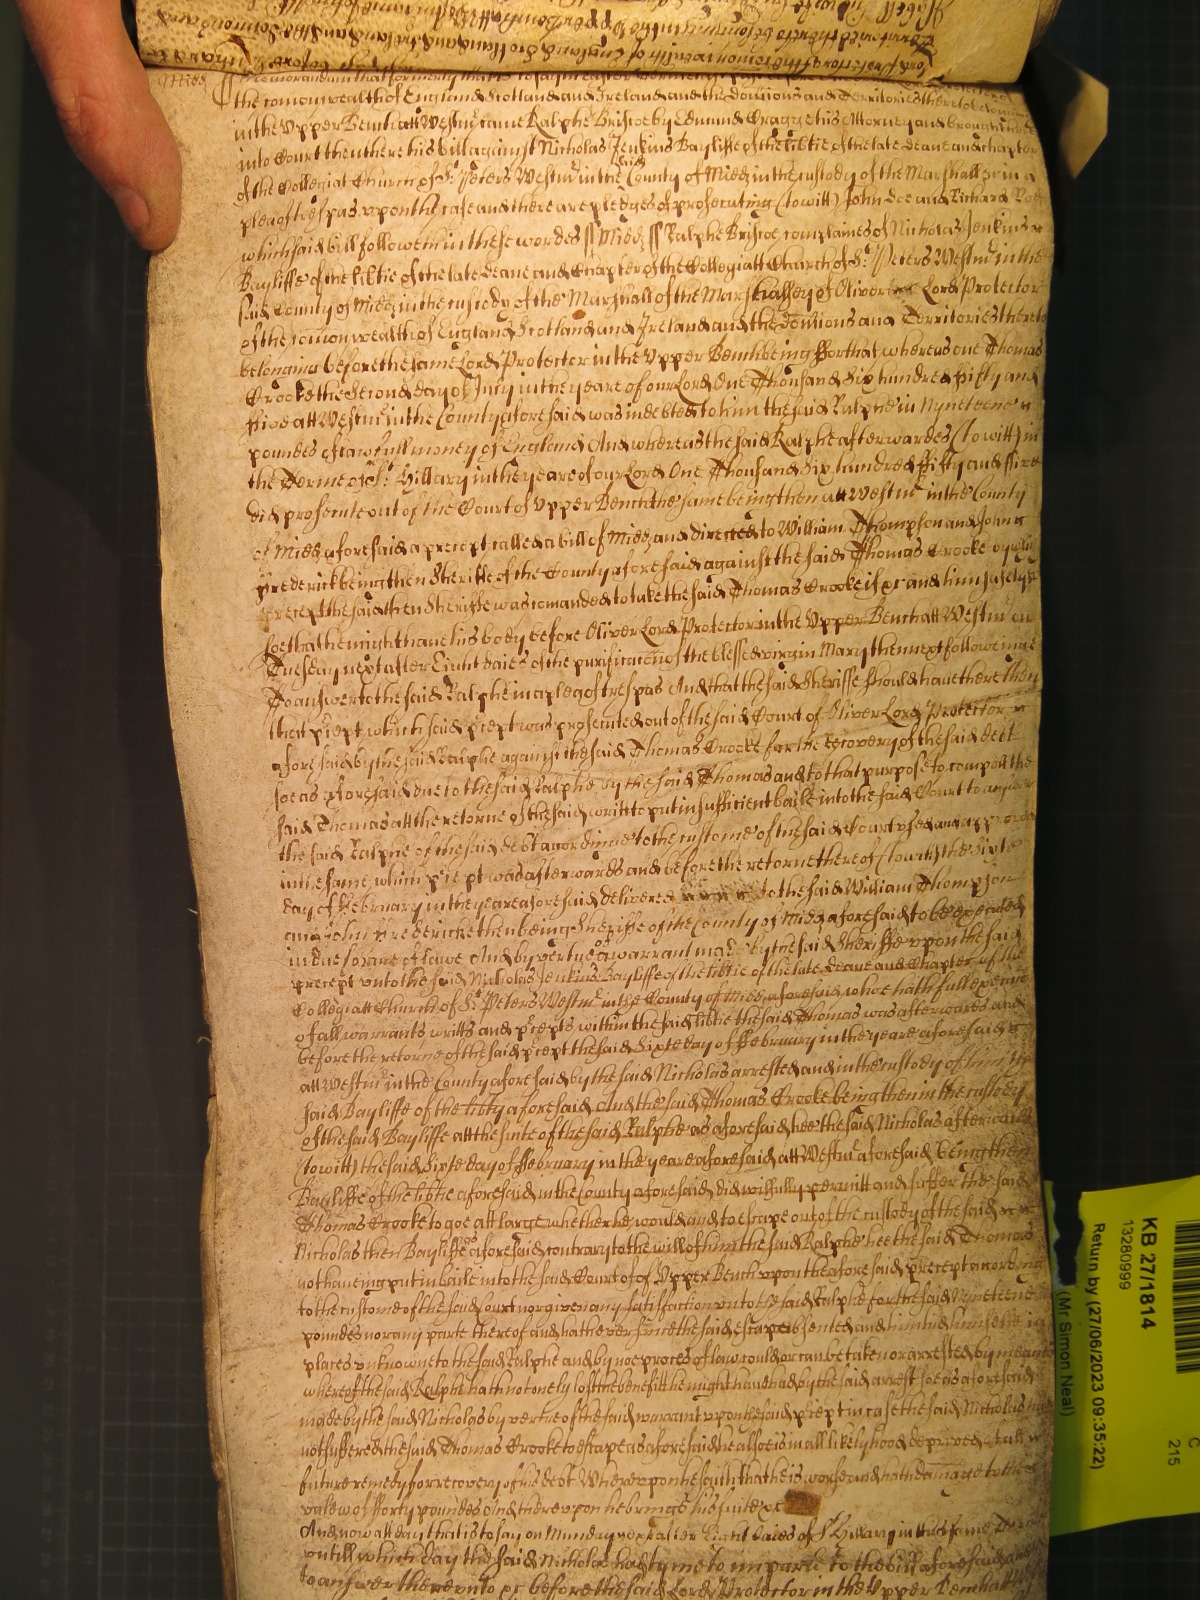 Midd
Memorandum that formerly that is to say in Easter Terme
the comonwealth of England Scotland and Ireland and the Domions and Territories thereto
in the Upper Bench att Westmr came Ralphe Briscoe by Edmund Cragge his Attorney and brought
into Court then there his bill against Nicholas Jenkins Bayliffe of the libtie of the late Deane and Chapter
of the Collegiat Church of St Peters Westmr in the said County of Midd in the custody of the Marshall &c in a
plea of trespas upon the case and there are pledges of prosecuting (to witt) John Doe and Richard Roe
which said bill followeth in these wordes ss Midd ss Ralphe Briscoe complaines of Nicholas Jenkins
Bayliffe of the libtie of the late Deane and Chapter of the Collegiatt Church of St Peters Westmr in the
said County of Midd in the custody of the Marshall of the Marshallsey of Oliver Lord Protector
of the comonwealth of England Scotland and Ireland and the Domions and Territories thereto
belonging before the same Lord Protector in the Upper Bench being ffor that whereas one Thomas
Crooke the Second day of July in the yeare of our Lord One Thousand Six hundred fifty and
ffive att Westmr in the County aforesaid was indebted to him the said Ralphe in Nyneteene
poundes of lawfull money of England And whereas the said Ralphe afterwardes (to witt) in
the Terme of St Hillary in the yeare of our Lord One Thousand Six hundred ffifty and ffive
did prosecute out of the Court of Upper Bench the same being then att Westmr in the County
of Midd aforesaid a precept called a bill of Midd and directed to William Thompson and John
Frederick being then Sheriffe of the County aforesaid against the said Thomas Crooke by wch
precept the said then Sheriffe was comanded to take the said Thomas Crooke if &c and him safely &c
soe that he might have his body before Oliver Lord Protector in the Upper Bench att Westmr on
Tuesday next after Eight daies of the purificacon of the blessed virgin Mary then next followeinge
To answer to the said Ralphe in a plea of trespas And that the said Sheriffe should have there then
that pcept which said pcept was prosecuted out of the said Court of Oliver Lord Protector
aforesaid by the said Ralphe against the said Thomas Crooke for the recovery of the said debt
soe as aforesaid due to the said Ralphe by the said Thomas and to that purpose to compell the
said Thomas att the retorne of the said writt to putt in sufficient baile into the said Court to answer
the said Ralphe of the said debt accordinge to the custome of the said Court used and approved
in the same, which pcept was afterwards and before the retorne thereof (to witt) the Sixte
day of February in the yeare aforesaid delivered to the said William Thompson
and John Frederick then being Sheriffe of the County of Midd aforesaid to be executed
in due forme of lawe And by vertue of a warrant made by the said Sheriffe upon the said
precept unto the said Nicholas Jenkins Bayliffe of the libtie of the late Deane and Chapter of the
Collegiatt Church of St Peters Westmr in the County of Midd aforesaid, whoe hath full
of all warrants writts and pcepts within the said libtie the said Thomas was afterwards and
before the retorne of the said pcept the said Sixte day of ffebruary in the yeare aforesaid
att Westmr in the County aforesaid by the said Nicholas arrested and in the custody of him the
said Bayliffe of the libty aforesaid And the said Thomas Crooke being then in the custody
of the said Bayliffe att the suite of the said Ralphe as aforesaid hee the said Nicholas afterwards
(to witt) the said Sixte day of ffebruary in the yeare aforesaid att Westmr aforesaid being then
Bayliffe of the libtie aforesaid in the County aforesaid did wilfully permitt and suffer the said
Thomas Crooke to goe att large whether he would and to escape out of the custody of the said
Nicholas then Bayliffe as aforesaid contrary to the will of him the said Ralphe hee the said Thomas
not haveing put in baile into the said Court of Upper Bench upon the aforesaid precept according
to the custome of the said Court nor given any satisfaction unto the said Ralphe for the said Nyneteene
poundes nor any parte thereof and hath ever since the said escape absented and himselfe in
places unknowne to the said Ralphe and by noe proces of law could or can be taken or arrested, by meanes
whereof the said Ralphe hath not onely lost the benefitt he might have had by the said arrest soe as aforesaid
made by the said Nicholas by vertue of the said warrant upon the said pcept in case the said Nicholas had
not suffered the said Thomas Crooke to escape as aforesaid he alsoe is in all likelyhood deprived of all
future remedy for recovery of his debt Whereupon he saith that he is worse and hath damage to the
valew of fforty poundes And thereupon he brings his suite &c
And now att day that is to say on Munday next after Eight daies of St Hillary in this same Terme
untill which day the said Nicholas had tyme to imparle to the bill aforesaid and
to answer thereunto &c before the said Lord Protector in the Upper Bench att
KB 27/1814
13280999
Return by (27/06/2023 09:35:22)
(Mr Simon Neal)
C
215